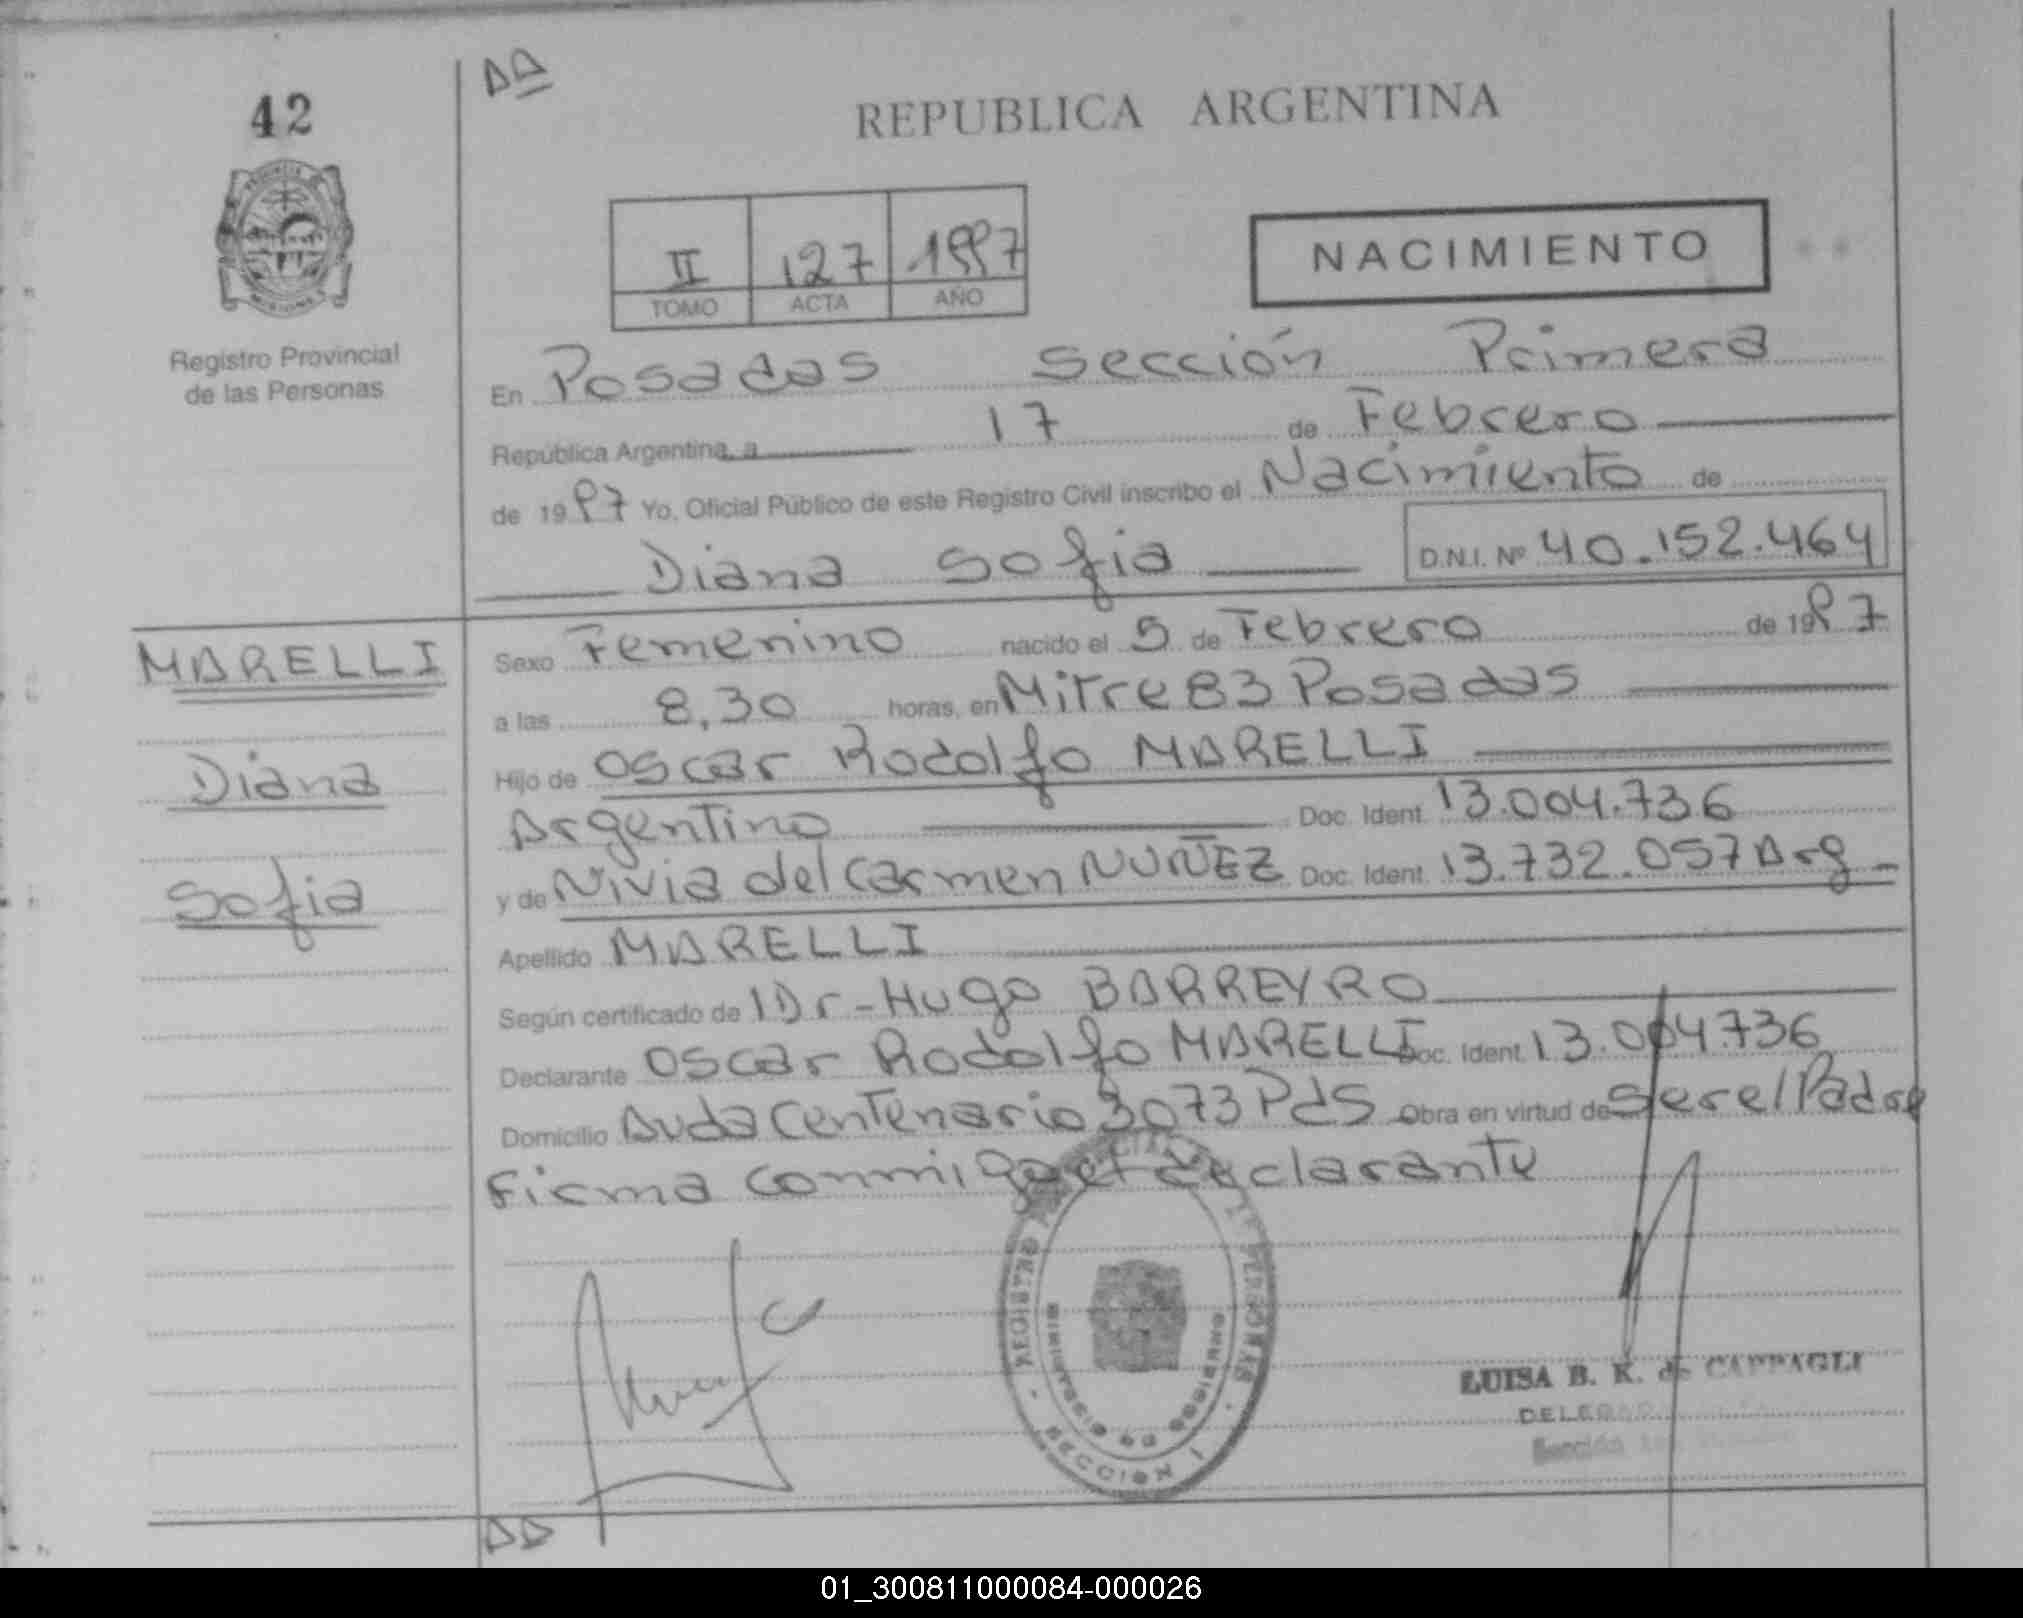 42
REPUBLICA ARGENTINA
II 127 1997
TOMO ACTA AÑO
NACIMIENTO
Registro Provincial
de las Personas
En Posadas Sección Primera
República Argentina, a 17 de Febrero
de 1997 Yo, Oficial Público de este Registro Civil inscribo el Nacimiento de
Diana Sofia D.N.I. Nº 40.152.464
MARELLI
Diana
Sofia
Sexo Femenino nacido el 5 de Febrero de 1997
a las 8,30 horas, en Mitre 83 Posadas
Hijo de Oscar Rodolfo MARELLI
Argentino Doc. Ident. 13.004.736
y de Nivia del Carmen NUÑEZ Doc. Ident. 13.732.057 Arg
Apellido MARELLI
Según certificado de Dr-Hugo BARREYRO
Declarante Oscar Rodolfo MARELLI Doc. Ident. 13.004.736
Domicilio Avda Centenario 3073 Pds Obra en virtud de ser el Padre
Firma conmigo el declarante
REGISTRO PERSONAS
SECCION 1
LUISA B. K. de CAPPAGLI
Sección
01_300811000084-000026